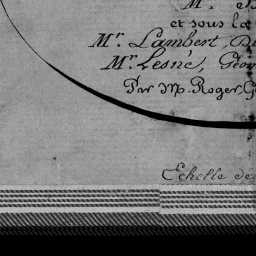 Mr.
et sous la
Mr. Lambert,
Mr. Lesné, Géo
Par Mp. Roger, G
Echelle de